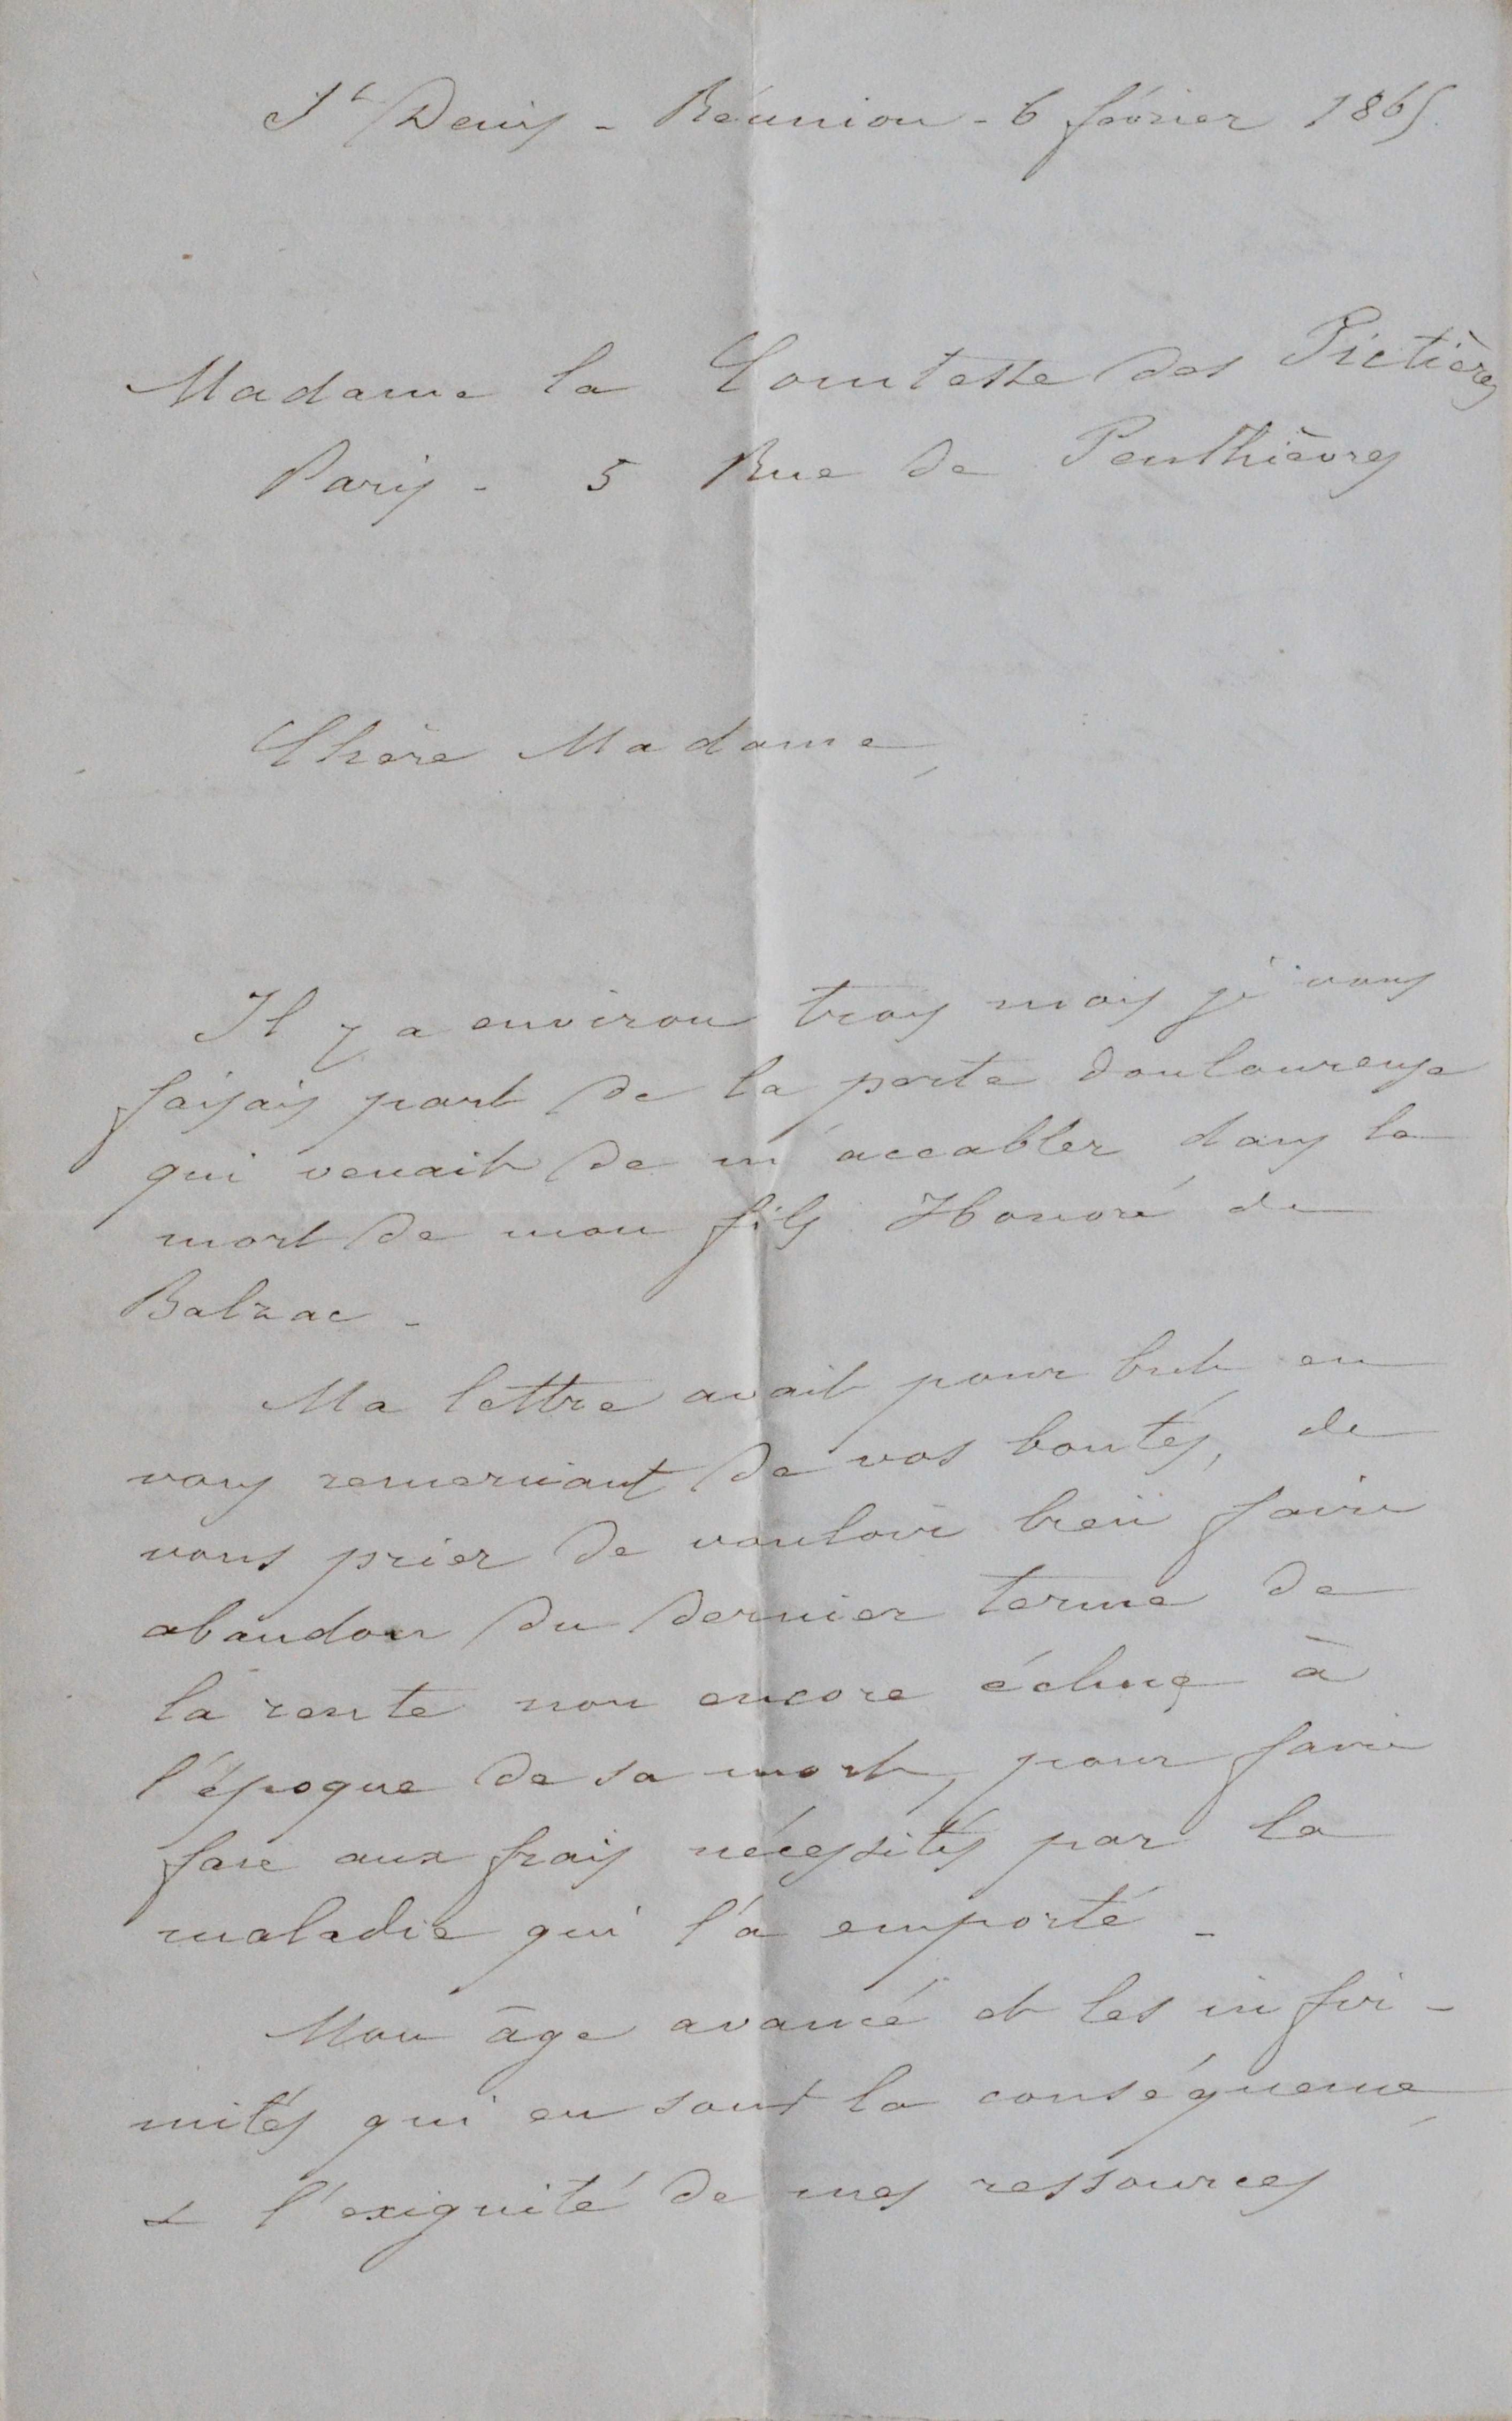 St Denis - Réunion - 6 février 1865.
Madame la Comtesse des
Paris - 5 Rue de Penthièvre
Chère Madame,
Il y a environ trois mois je vous
faisais part de la perte douloureuse
qui venait de m'accabler dans la
mort de mon fils Honoré de
Balzac -
Ma lettre avait pour but en
vous remerciant de vos bontés, de
vous prier de vouloir bien faire
abandon du dernier terme de
la rente non encore échue à
l'époque de sa mort, pour faire
face aux frais nécessités par la
maladie qui l'a emporté -
Mon âge avancé et les infir-
mités qui en sont la conséquence,
& l'exiguité de mes ressources